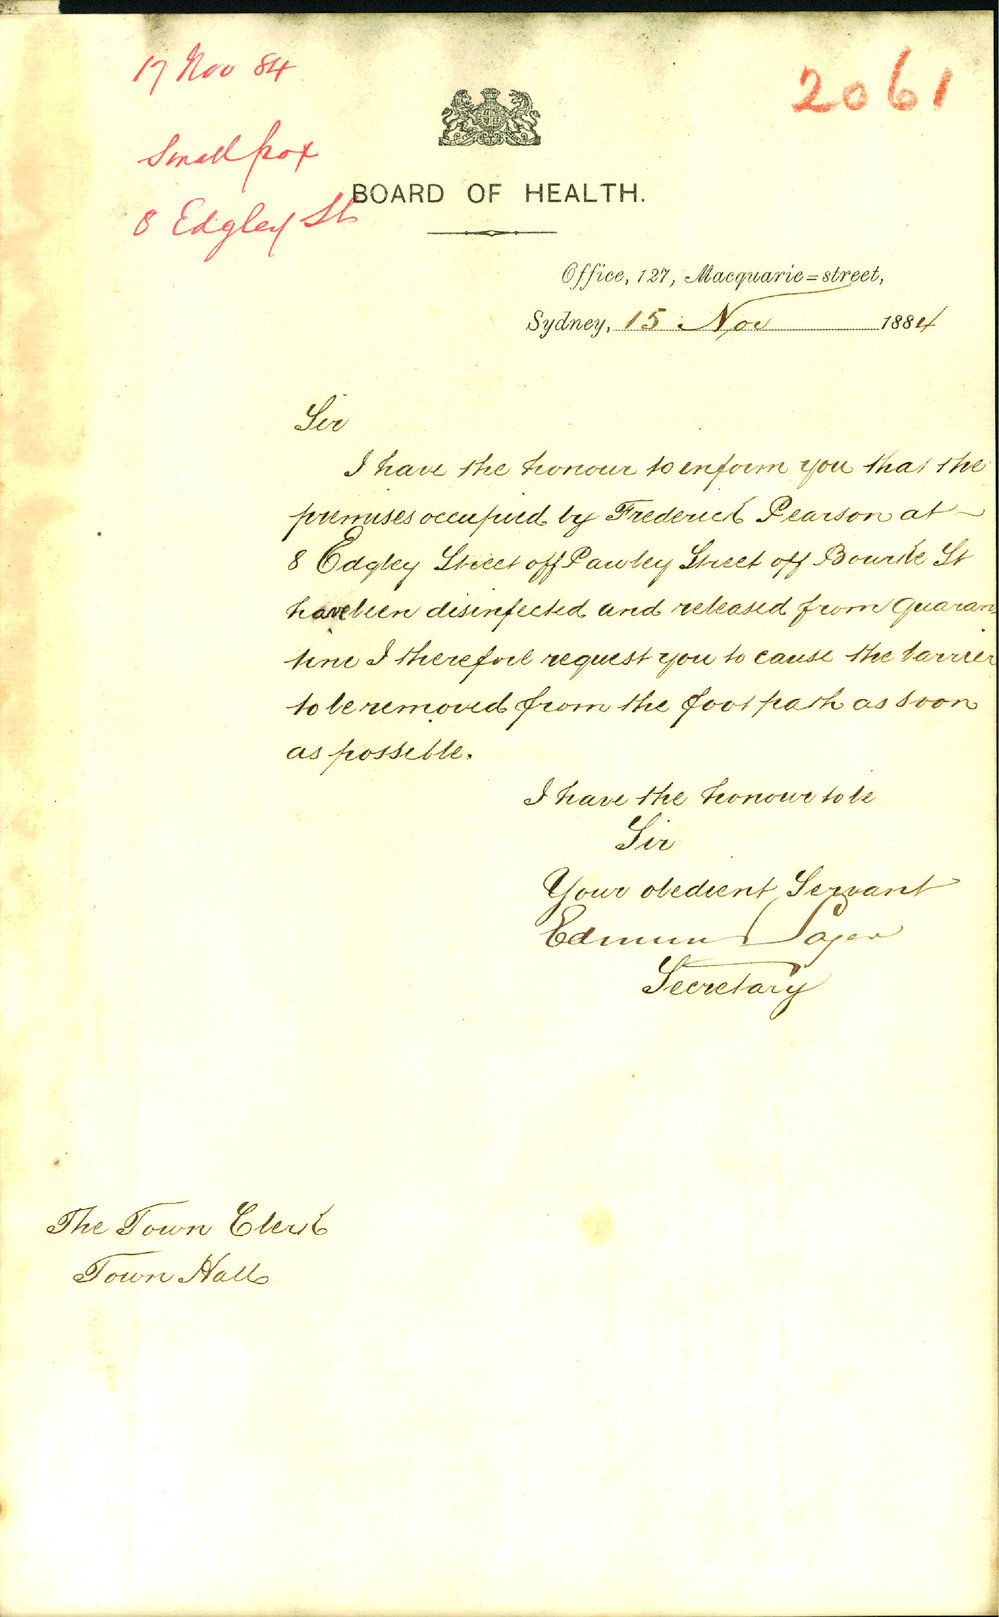 17 Nov 84
2061
Small pox
8 Edgley St
BOARD OF HEALTH.
Office, 127, Macquarie=street,
Sydney, 15 Nov 1884
Sir
I have the honour to inform you that the
premises occupied by Frederick Pearson at
8 Edgley Street off Pawley Street off Bourke St
have been disinfected and released from Quaran
tine I therefore request you to cause the barrier
to be removed from the foot path as soon
as possible.
I have the honour to be
Sir
Your obedient Servant
Edmund Sager
Secretary
The Town Clerk
Town Hall